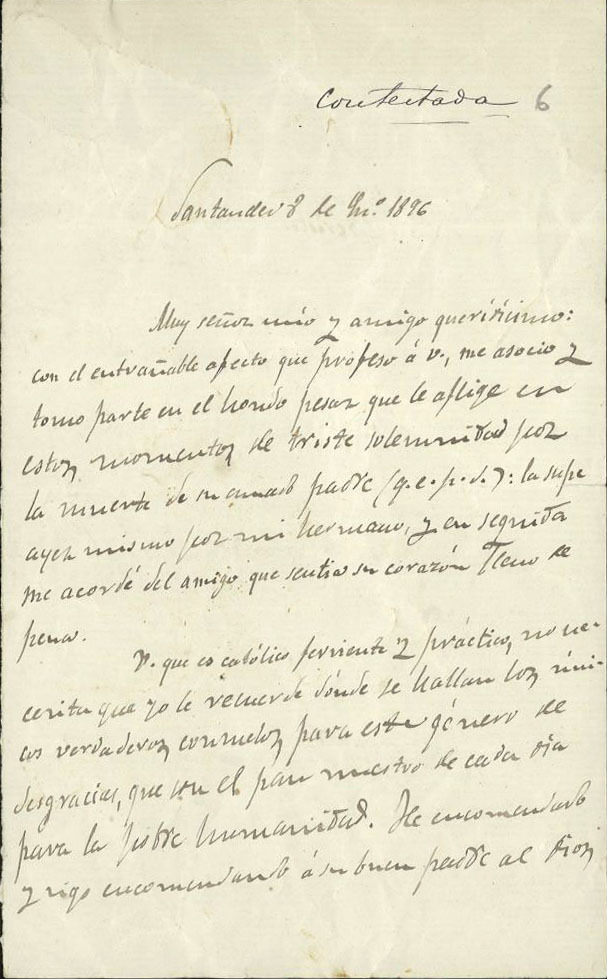 Contestada 6
Santander 8 de En.º 1896
Muy señor mío y amigo queridísimo:
con el entrañable afecto que profeso á V., me asocio y
tomo parte en el hondo pesar que le aflige en
estos momentos de triste solemnidad por
la muerte de su amado padre (q. e. p. d.): la supe
ayer mismo por mi hermano, y en seguida
me acordé del amigo que sentía su corazón lleno de
pena.
V. que es católico ferviente y práctico, no ne-
cesita que yo le recuerde dónde se hallan los úni-
cos verdaderos consuelos para este género de
desgracias, que son el pan nuestro de cada día
para la pobre humanidad. He encomendado
y sigo encomendando á su buen padre al Dios